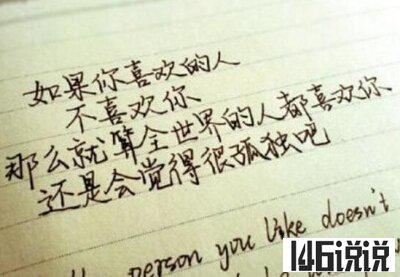 如果你喜欢的人
不喜欢你
那么就算全世界的人都喜欢你
还是会觉得很孤独吧
person you like doesn't
146i说说